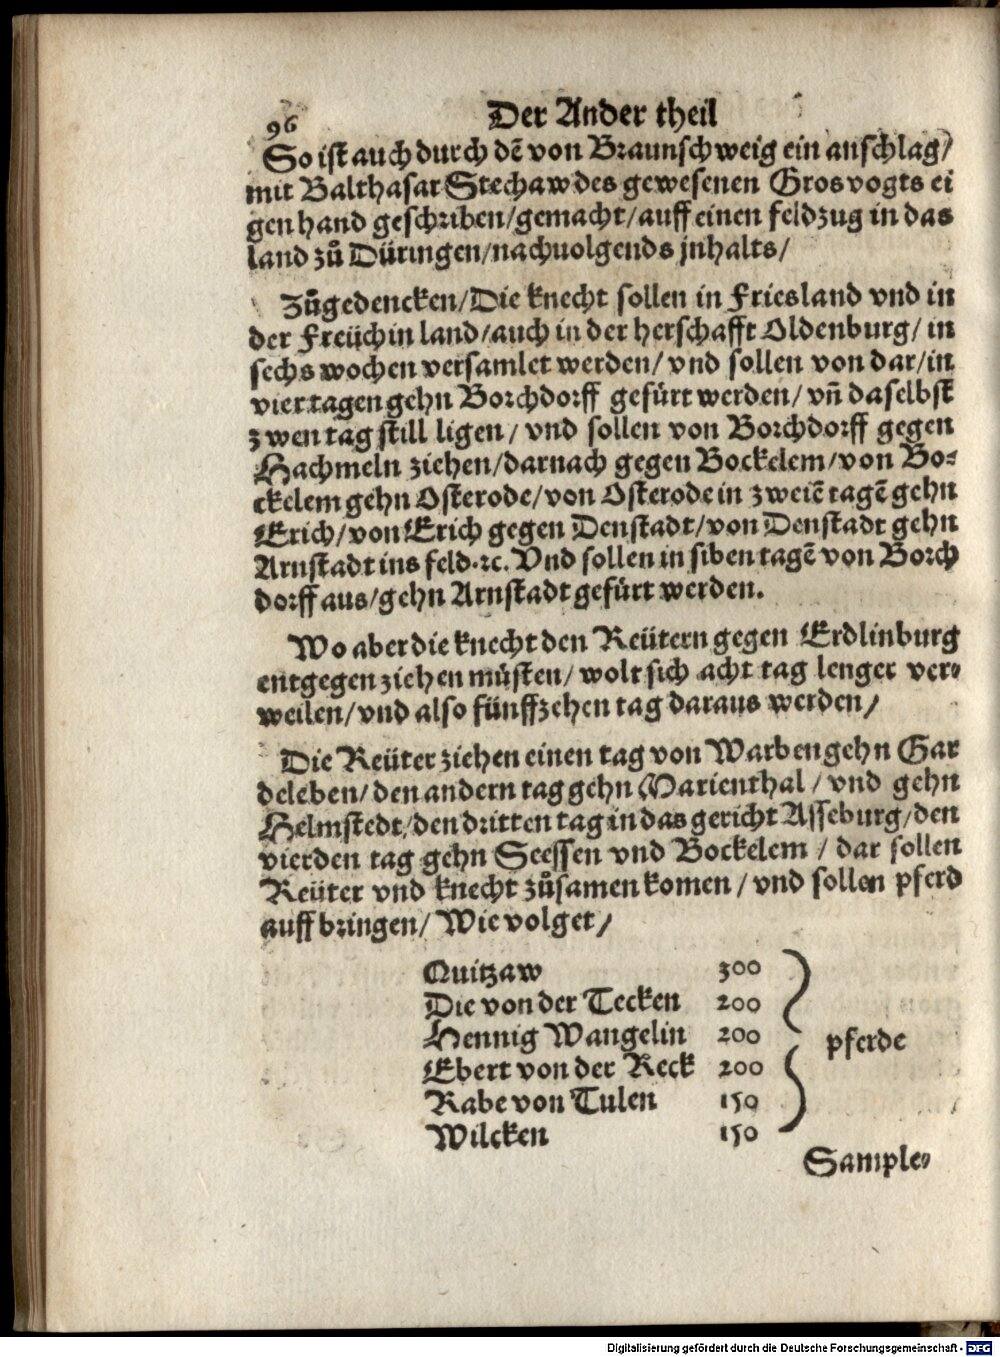 96
Der Ander theil
So ist auch durch dē von Braunschweig ein anschlag/
mit Balthasar Stechaw des gewesenen Grosvogts ei
gen hand geschriben/gemacht/auff einen feldzug in das
land zů Düringen/nachuolgends jnhalts/
Zůgedencken/Die knecht sollen in Friesland vnd in
der Freüchin land/auch in der herschafft Oldenburg/in
sechs wochen versamlet werden/vnd sollen von dar/in
vier tagen gehn Borchdorff gefürt werden/vn̄ daselbst
zwen tag still ligen/vnd sollen von Borchdorff gegen
Hachmeln ziehen/darnach gegen Bockelem/von Bo⸗
ckelem gehn Osterode/von Osterode in zweiē tagē gehn
Erich/von Erich gegen Denstadt/von Denstadt gehn
Arnstadt ins feld.ꝛc. Vnd sollen in siben tagē von Borch
dorff aus/gehn Arnstadt gefürt werden.
Wo aber die knecht den Reütern gegen Erdlinburg
entgegen ziehen müsten/wolt sich acht tag lenger ver⸗
weilen/vnd also fünffzehen tag daraus werden/
Die Reüter ziehen einen tag von Warben gehn Gar
deleben/den andern tag gehn Marienthal/vnd gehn
Helmstedt/den dritten tag in das gericht Asseburg/den
vierden tag gehn Seessen vnd Bockelem/dar sollen
Reüter vnd knecht zůsamen komen/vnd sollen pferd
auff bringen/Wie volget/
Quitzaw 300
Die von der Tecken 200
Hennig Wangelin 200
pferde
Ebert von der Reck 200
Rabe von Tulen 150
Wilcken 150
Sample⸗
Digitalisierung gefördert durch die Deutsche Forschungsgemeinschaft - DFG